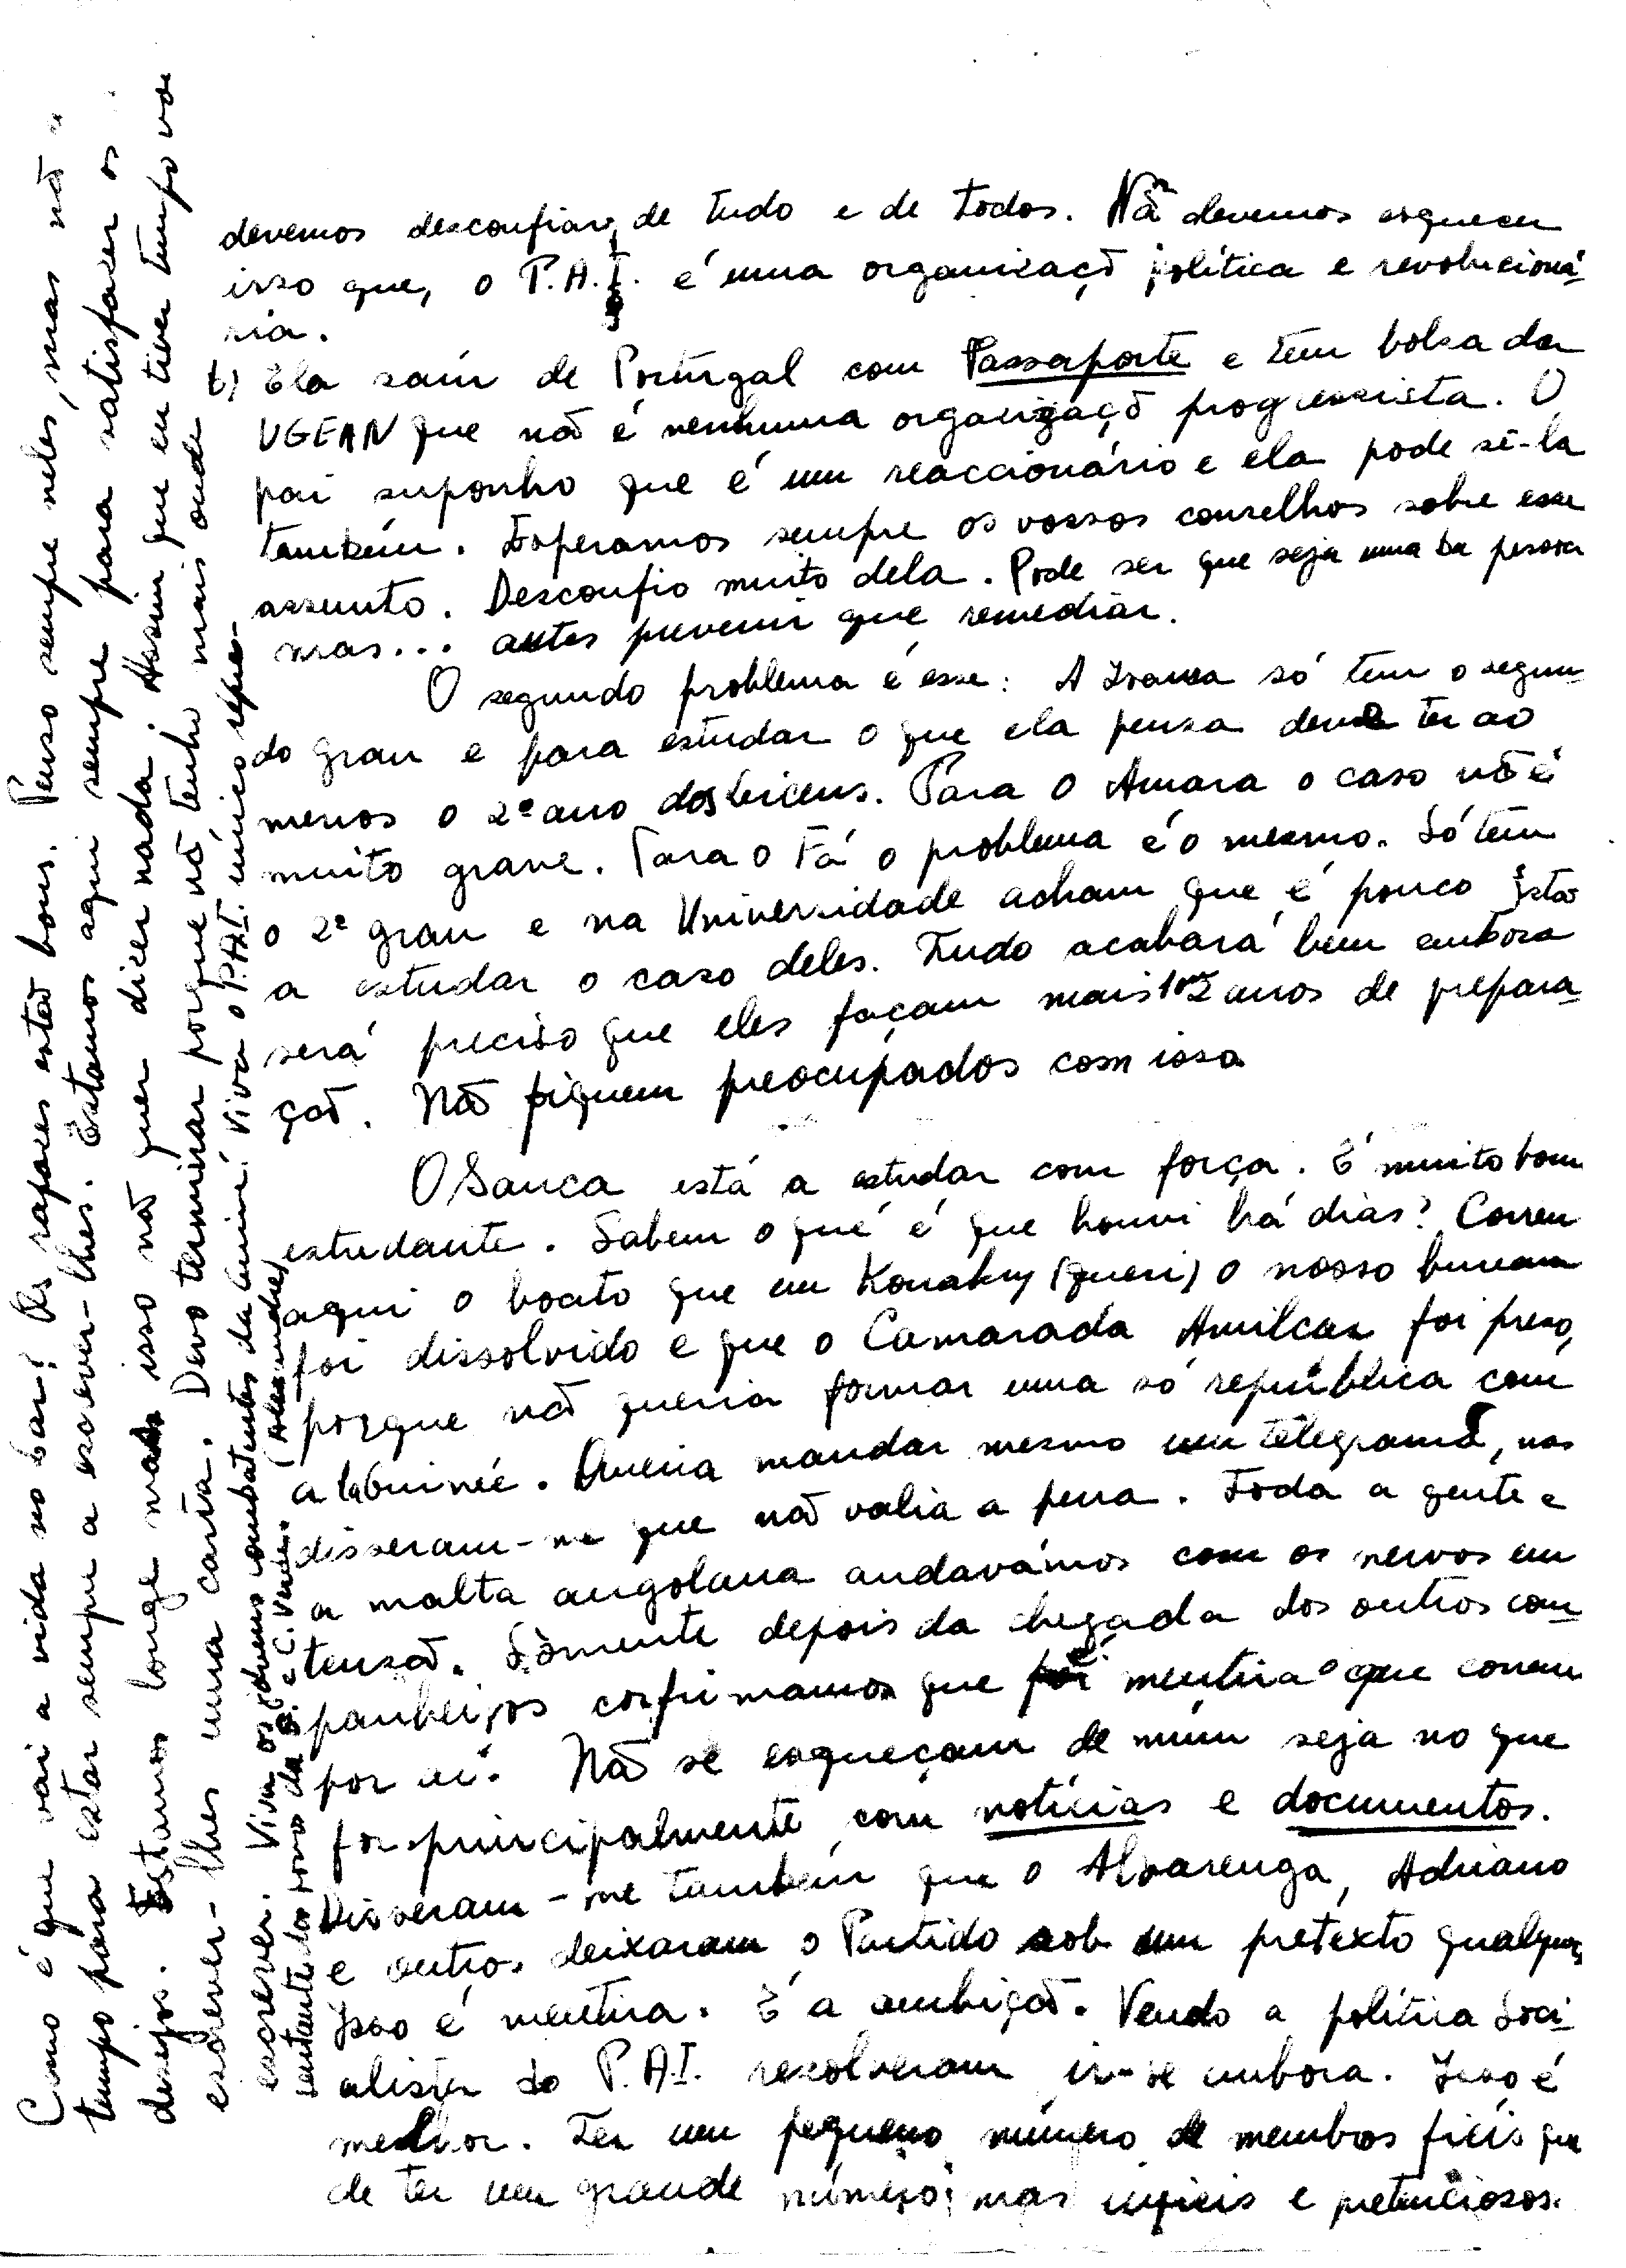 devemos desconfiar, de tudo e de todos. Não devemos esquecer
isso que, o P.A.I. é uma organizaçõ política e revolucioná-
ria.
b) Ela saíu de Portugal com Passaporte e tem bolsa da
UGEAN que nõ é nenhuma organizaçõ progressista. O
pai suponho que é um reaccionário e ela pode sê-la
também. Esperamos sempre os vossos conselhos sobre esse
assunto. Desconfio muito dela. Pode ser que seja uma boa pessoa
mas... antes prevenir que remediar.
O segundo problema é esse: A só tem o segun-
do grau e para estudar o que ela pensa deve ter ao
menos o 2º ano dos liceus. Para o Amara o caso nõ é
muito grave. Para o Fá o problema é o mesmo. Só tem
o 2º grau e na Universidade acham que é pouco Estão
a estudar o caso deles. Tudo acabará bem embora
será preciso que eles façam mais 1 ou 2 anos de prepara-
çaõ. Não fiquem preocupados com isso
O Sanca está a estudar com força. É muito bom
estudante. Sabem o quê é que houvi há dias? Correu
aqui o boato que em Konakry (Gueri) o nosso bureau
foi dissolvido e que o Camarada Amilcar foi preso,
porque nõ queria formar uma só república com
a laGuinée. Queria mandar mesmo um telegrama, mas
disseram-me que nõ valia a pena. Toda a gente e
a malta angolana andavámos com os nervos em
tensaõ. Sòmente depois da chegada dos outros com-
panheiros confirmamos que é mentira o que correu
por aí. Não se esqueçam de mim seja no que
for principalmente com notícias e documentos.
Disseram-me também que o Alvarenga, Adriano
e outros deixaram o Partido sob um pretexto qualquer,
Isso é mentira. É a ambiçaõ. Vendo a política Soci-
alista do P.A.I. resolveram ir-se embora. Isso é
melhor. Ter um pequeno número de membros fiéis que
de ter um grande número, mas infieis e pretenciosos.
Como é que vai a vida no bar? Os rapazes estaõ bons. Penso sempre neles, mas nõ
tempo para estar sempre a escrever-lhes. Estamos aqui sempre para satisfazer os
desejos. Estamos longe mas isso nõ quer dizer nada. Assim que eu tiver tempo vou
escrever-lhes uma carta. Devo terminar porque nõ tenho mais onde
escrever. Viva os jovens combatentes da Guiné. Viva o P.A.I. único repre-
sentante do povo da G. e C. Verde. (Alexandre)